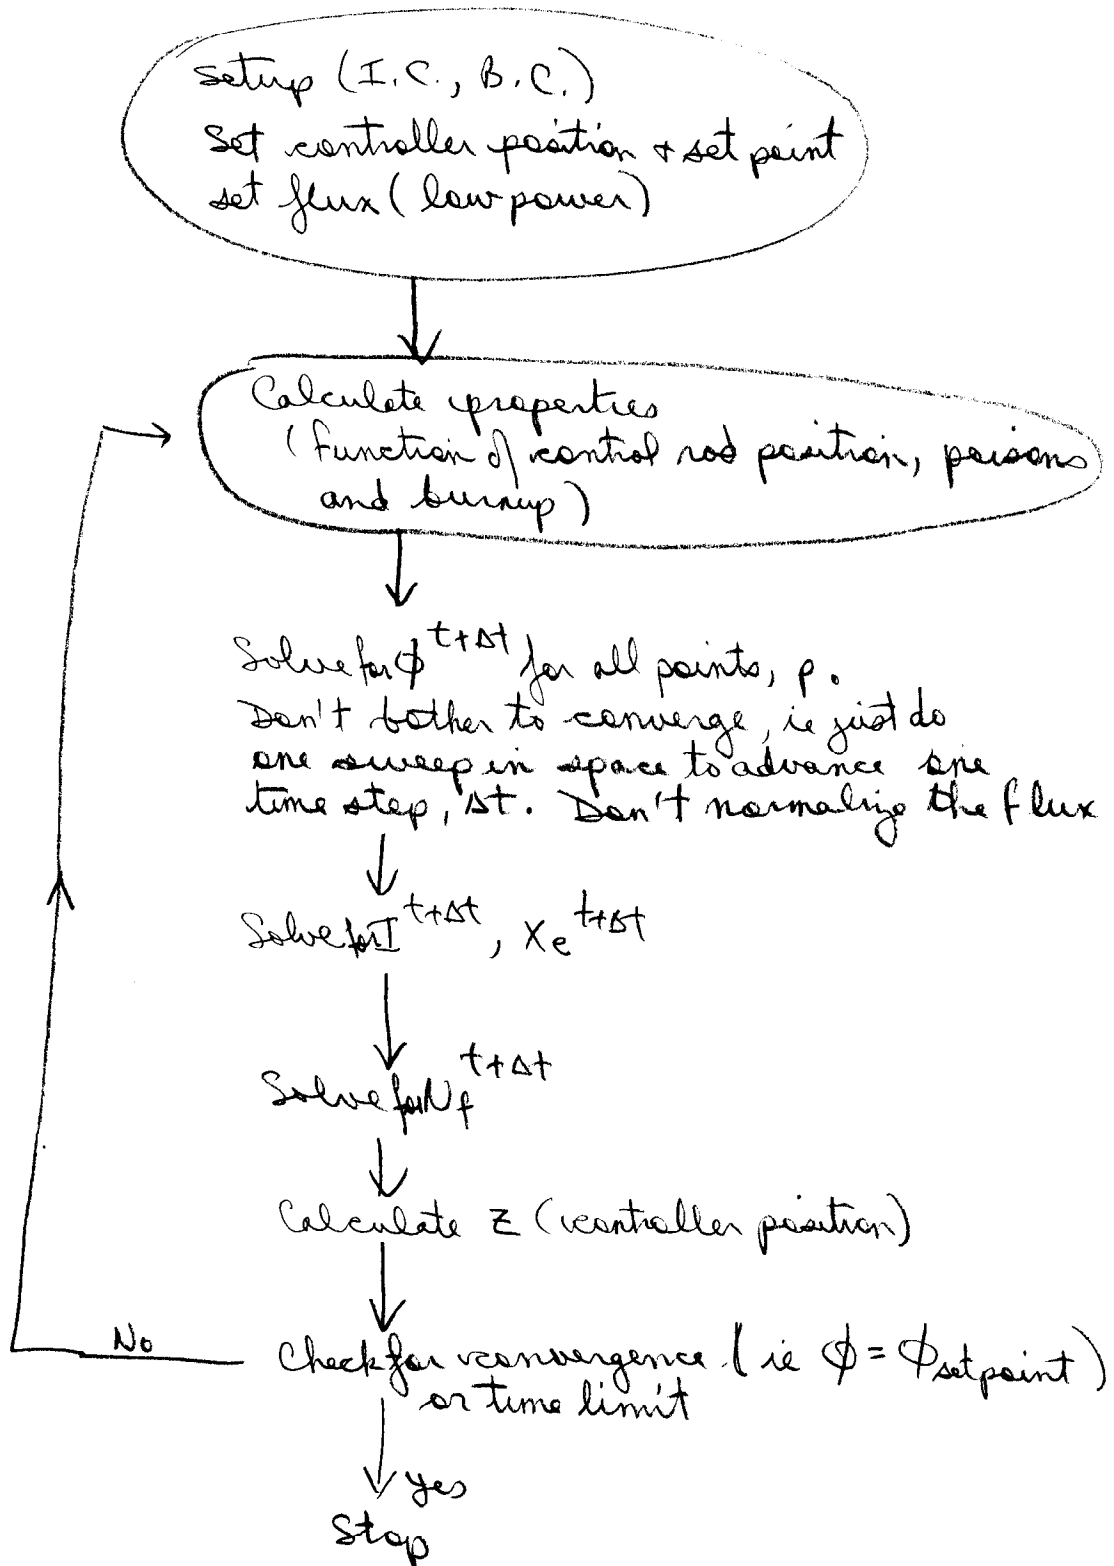 setup (I.C., B.C.)
Set controller position + set point
set flux (low power)
Calculate properties
(function of control rod position, poisons
and burnup)
Solve for ϕ^{t+Δt} for all points, p.
Don't bother to converge, ie just do
one sweep in space to advance one
time step, Δt. Don't normalize the flux
Solve for I^{t+Δt}, Xe^{t+Δt}
Solve for N_f^{t+Δt}
Calculate Z (controller position)
No
Check for convergence (ie ϕ = ϕ_{setpoint})
or time limit
yes
Stop